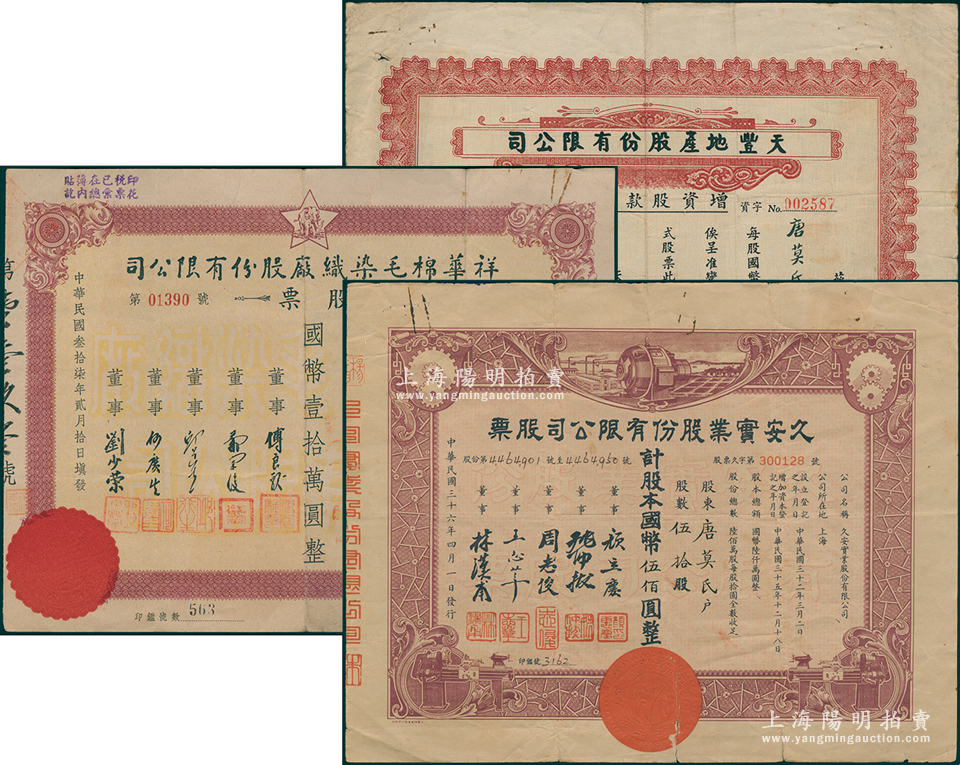 天豐地產股份有限公司
增資股款
資字 No. 002587
唐莫氏
每股國幣
俟呈准變
式股票此
印花
稅票
已彙
在總
簿內
貼訖
祥華棉毛染織廠股份有限公司
股票
第 01390 號
國幣壹拾萬圓整
董事 傅良駿
董事
董事
董事 何廣生
董事 劉少榮
中華民國叁拾柒年貳月拾日填發
印鑑號數 563
久安實業股份有限公司股票
股票久字第 300128 號
股份第 4464901 號至 4464950 號
公司名稱 久安實業股份有限公司
公司所在地 上海
設立登記之年月日 中華民國三十二年三月二日
增加資本登記之年月日 中華民國三十五年十二月十八日
股本總額 國幣陸仟萬圓整
股份總數 陸佰萬股每股拾圓全數收足
股東 唐莫氏 戶
股數 伍拾股
計股本國幣伍佰圓整
董事
董事
董事 周志俊
董事
董事 林漢甫
中華民國三十六年四月一日發行
印鑑號 3162
上海陽明拍賣
www.yangmingauction.com
上海陽明拍賣
www.yangmingauction.com